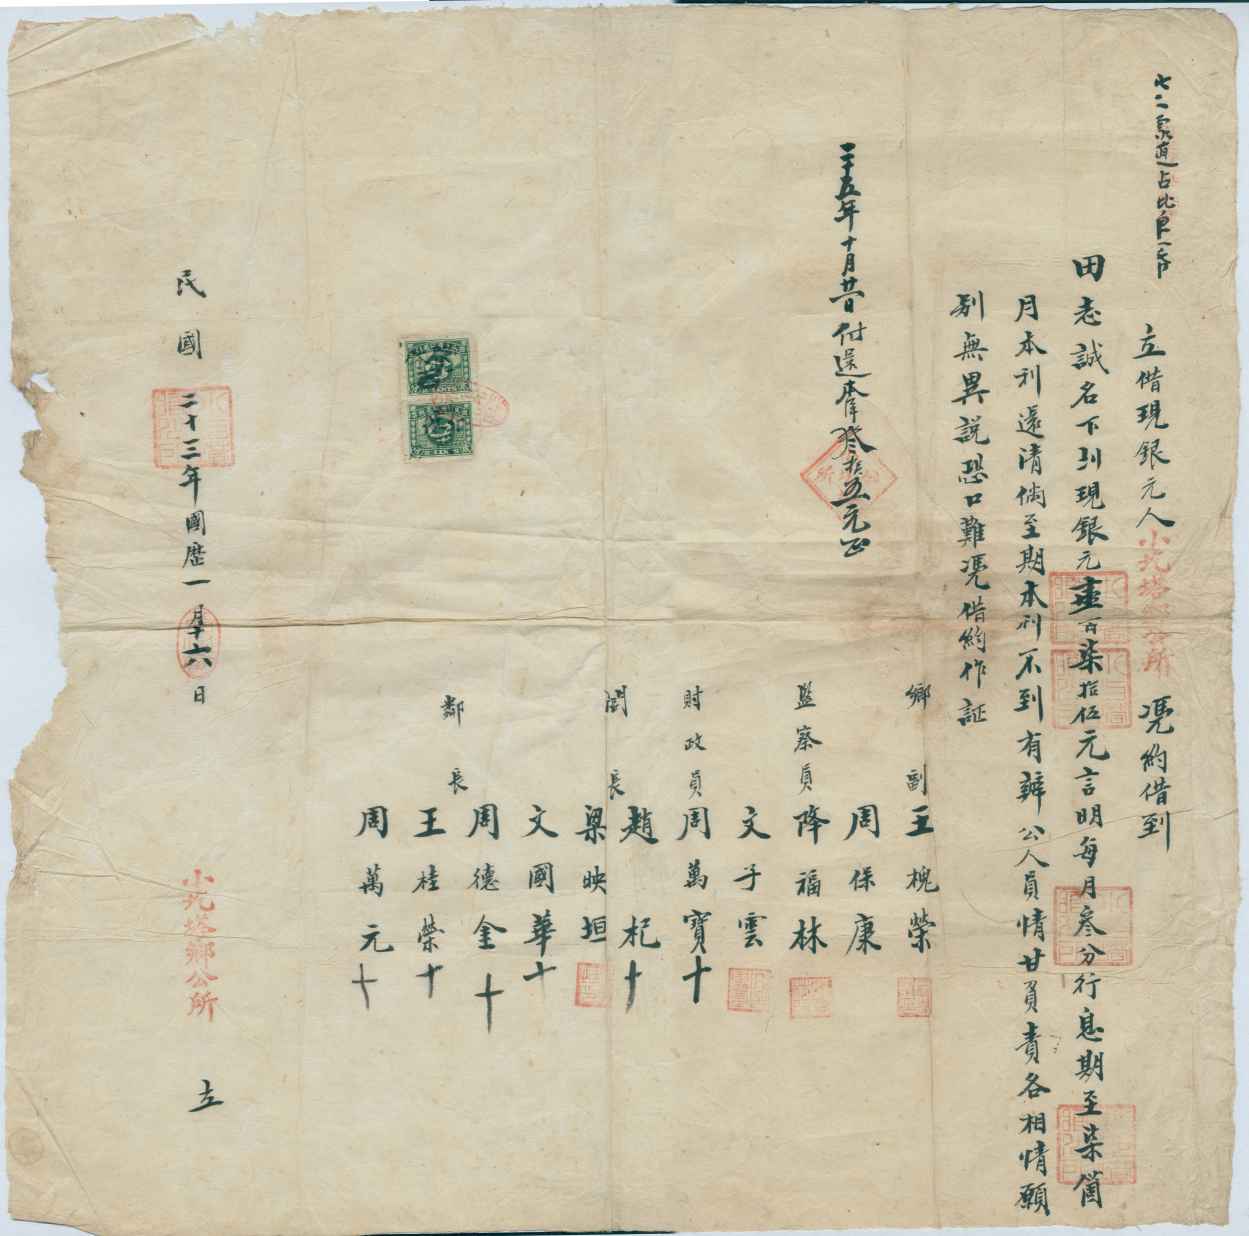 立借現銀元人小瓦塔鄉公所憑約借到
田志誠名下到現銀元壹百柒拾伍元言明每月叁分行息期至柒個
月本利還清倘至期本利不到有辦公人員情甘負責各相情願
別無異説恐口難憑借約作証
二十五年十月廿日付還本洋叁拾五元正
鄉副王槐榮
周保康
監察員降福林
文子雲
財政員周萬寶十
閭長趙杞十
梁映垣
文國華十
鄰長周德金十
王桂榮十
周萬元十
民國二十三年國歷一月十六日
小瓦塔鄉公所立